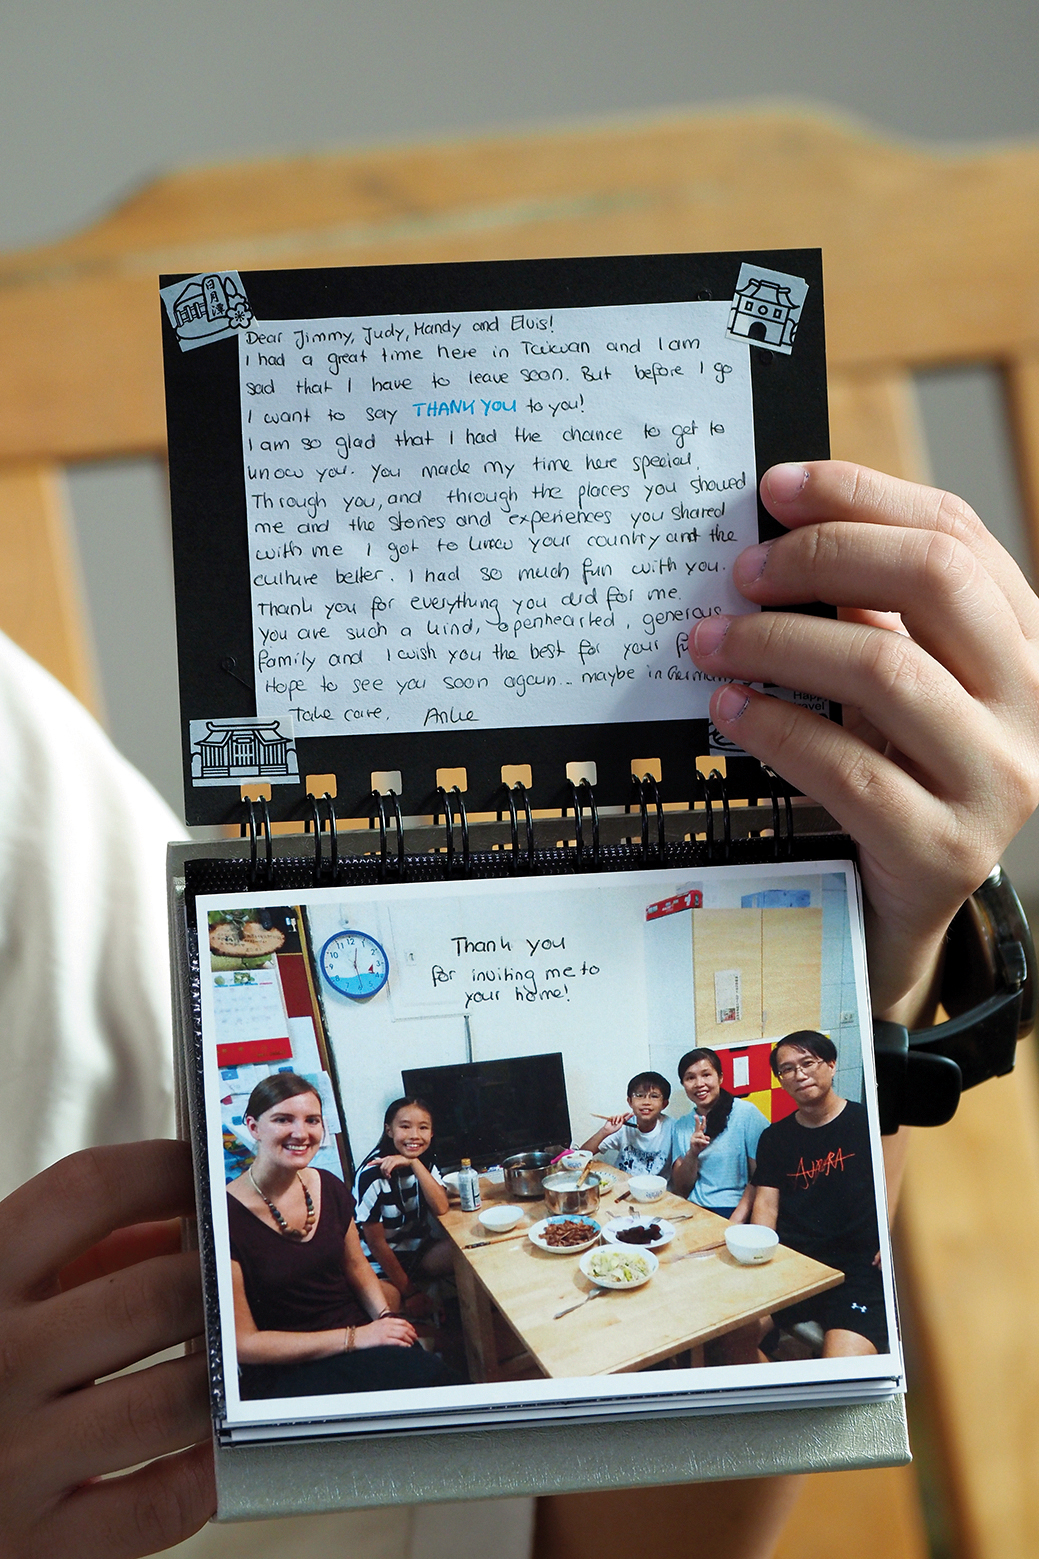 日月潭
Dear Jimmy, Judy, Mandy and Elvis!
I had a great time here in Taiwan and I am
sad that I have to leave soon. But before I go
I want to say THANK YOU to you!
I am so glad that I had the chance to get to
know you. You made my time here special.
Through you, and through the places you showed
me and the stories and experiences you shared
with me I got to know your country and the
culture better. I had so much fun with you.
Thank you for everything you did for me.
You are such a kind, openhearted, generous
family and I wish you the best for your
Hope to see you soon again... maybe in Germany
Take care, Anke
Happy
travel
Thank you
for inviting me to
your home!